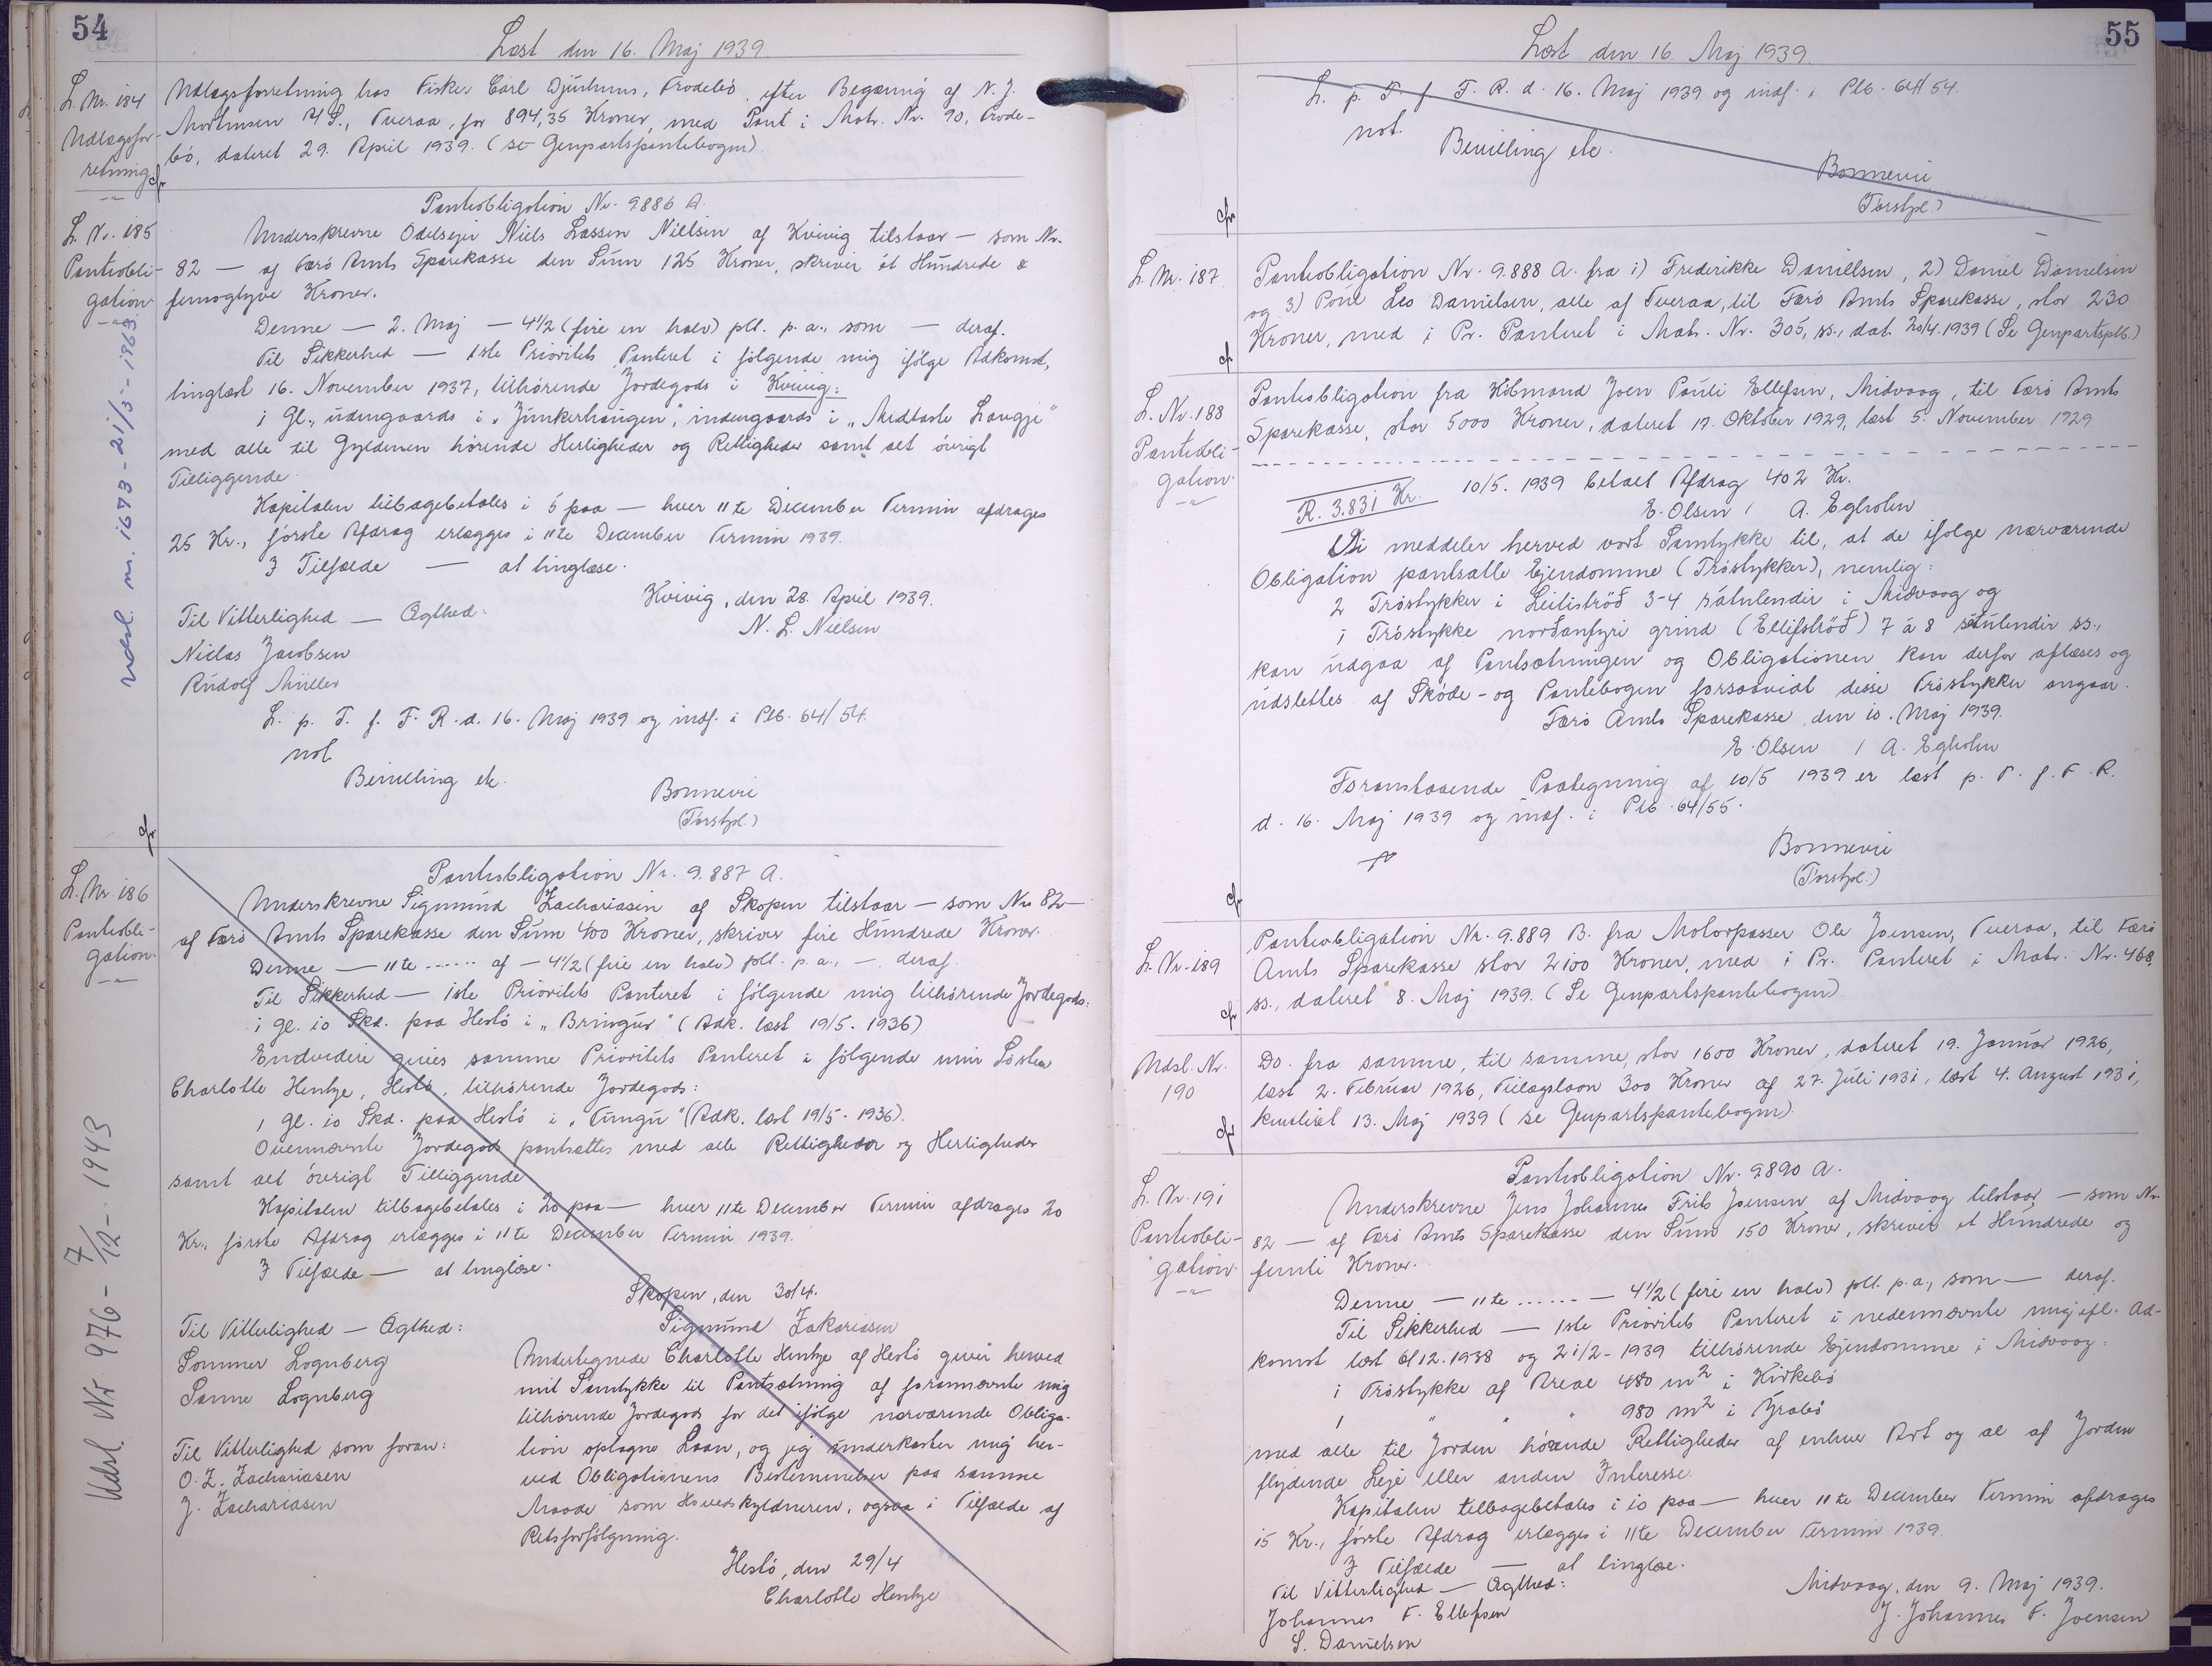 54
Læst den 16. Maj 1939
L. Nr. 184
Udlægsfor-
retning
Udlægsforretning hos Fisker Carl Djurhuus, Frodebö, efter Begæring af N. J.
Mortensen Y S., Tveraa, for 894,35 Kroner, med Pant i Matr. Nr. 90, Frode-
bö, dateret 29. April 1939. (se Genpartspantebogen)
cfr
L. Nr. 185
Pantobli-
gation
Pantobligation Nr. 9886 A.
Underskrevne Odelsejer Niels Lassen Nielsen af Kvivig tilstaar — som Nr.
82 — af Færö Amts Sparekasse den Sum 125 Kroner, skriver ét Hundrede &
femogtyve Kroner.
Denne — 2. Maj — 4 1/2 (fire en halv) pCt. p. a., som — deraf.
Til Sikkerhed — 1ste Prioritets Panteret i følgende mig ifölge Adkomst,
tinglæst 16. November 1937, tilhörende Jordegods i Kvivig:
1 Gl., udengaards i „Junkerhaugen", indengaards i „Midtaste Laugje"
med alle til Gyldenen hörende Herligheder og Rettigheder samt alt övrigt
Tilliggende.
Kapitalen tilbagebetales i 5 paa — hver 11te December Termin afdrages
25 Kr., förste Afdrag erlægges i 11te December Termin 1939.
I Tilfælde — at tinglæse.
Kvivig, den 28. April 1939.
Til Vitterlighed — Ægthed:
N. L. Nielsen
Niclas Jacobsen
Rudolf Müller
L. p. T. f. F. R. d. 16. Maj 1939 og indf. i Plb. 64/54.
not
Bevilling etc.
Bonnevie
(Forstpl.)
cfr
Udsl. nr. 1673 - 21/5 - 1963.
L. Nr 186
Pantobli-
gation
Pantobligation Nr. 9.887 A.
Underskrevne Sigmund Zachariasen af Skopen tilstaar — som Nr. 82 —
af Færö Amts Sparekasse den Sum 400 Kroner, skriver fire Hundrede Kroner.
Denne — 11te ...... af — 4 1/2 (fire en halv) pCt. p. a., — deraf.
Til Sikkerhed — 1ste Prioritets Panteret i fölgende mig tilhörende Jordegods:
1 Gl. 10 Skd. paa Hestö i „Bringur" (Adk. læst 19/5. 1936)
Endvidere gives samme Prioritets Panteret i fölgende min Söster
Charlotte Hentze, Hestö, tilhörende Jordegods:
1 Gl. 10 Skd. paa Hestö i „Tungu" (Adk. læst 19/5. 1936).
Ovennævnte Jordegods pantsættes med alle Rettigheder og Herligheder
samt alt övrigt Tilliggende
Kapitalen tilbagebetales i 20 paa — hver 11te December Termin afdrages 20
Kr., förste Afdrag erlægges i 11te December Termin 1939.
I Tilfælde — at tinglæse.
Skopen, den 30/4.
Til Vitterlighed — Ægthed:
Sigmund Zakariasen
Sommer Lognberg
Sanne Lognberg
Undertegnede Charlotte Hentze af Hestö giver herved
mit Samtykke til Pantsætning af forannævnte mig
tilhörende Jordegods for det ifölge nærværende Obliga-
tion optagne Laan, og jeg underkaster mig her-
ved Obligationens Bestemmelser paa samme
Maade som Hovedskyldneren, ogsaa i Tilfælde af
Retsforfölgning.
Til Vitterlighed som foran:
O. Z. Zachariasen
J. Zachariasen
Hestö, den 29/4
Charlotte Hentze
Udsl. Nr. 976 - 7/12 - 1943
55
Læst den 16. Maj 1939.
L. p. T. f. F. R. d. 16. Maj 1939 og indf. i Plb. 64/54.
not.
Bevilling etc.
Bonnevie
(Forstpl.)
cfr
L. Nr. 187
Pantobligation Nr. 9.888 A. fra 1) Frederikke Danielsen, 2) Daniel Danielsen
og 3) Poul Leo Danielsen, alle af Tveraa, til Færö Amts Sparekasse, stor 230
Kroner, med 1 Pr. Panteret i Matr. Nr. 305, ss., dat. 20/4.1939 (Se Genpartsplb.)
cfr
L. Nr. 188
Pantobli-
gation.
Pantobligation fra Köbmand Joen Pauli Ellefsen, Midvaag, til Færö Amts
Sparekasse, stor 5000 Kroner, dateret 17. Oktober 1929, læst 5. November 1929.
R. 3.831 Kr.
10/5. 1939 betalt Afdrag 402 Kr.
E. Olsen / A. Egholm
Vi meddeler herved vort Samtykke til, at de ifölge nærværende
Obligation pantsatte Ejendomme (Tröstykker), nemlig:
2 Tröstykker i Leitiströð 3-4 sátulendir i Midvaag og
1 Tröstykke norðanfyri grind (Ellifströð) 7 á 8 sátulendir ss.,
kan udgaa af Pantsætningen og Obligationen kan derfor aflæses og
udslettes af Sköde- og Pantebogen forsaavidt disse Tröstykker angaar.
Færö Amts Sparekasse, den 10. Maj 1939.
E. Olsen / A. Egholm
Foranstaaende Paategning af 10/5 1939 er læst p. T. f. F. R.
d. 16. Maj 1939 og indf. i Plb. 64/55.
Bonnevie
(Forstpl.)
cfr
L. Nr. 189
Pantobligation Nr. 9.889 B. fra Motorpasser Ole Joensen, Tveraa, til Færö
Amts Sparekasse stor 2100 Kroner, med 1 Pr. Panteret i Matr. Nr. 468,
ss., dateret 8. Maj 1939. (Se Genpartspantebogen)
cfr
Udsl. Nr.
190
Do. fra samme, til samme, stor 1600 Kroner, dateret 19. Januar 1926,
læst 2. Februar 1926, Tillægslaan 300 Kroner af 27. Juli 1931, læst 4. August 1931,
kvitteret 13. Maj 1939 (se Genpartspantebogen).
cfr
L. Nr. 191
Pantobli-
gation.
Pantobligation Nr. 9.890 A.
Underskrevne Jens Johannes Frits Joensen af Midvaag tilstaar — som Nr.
82 — af Færö Amts Sparekasse den Sum 150 Kroner, skriver et Hundrede og
femti Kroner.
Denne — 11te ...... — 4 1/2 (fire en halv) pCt. p.a., som — deraf.
Til Sikkerhed — 1ste Prioritets Panteret i nedennævnte mig ifl. Ad-
komst læst 6/12.1938 og 21/2 - 1939 tilhörende Ejendomme i Midvaag:
1 Tröstykke af Areal 480 m² i Kirkebö
1 " " " 980 m² i Grabö
med alle til Jorden hörende Rettigheder af enhver Art og al af Jorden
flydende Leje eller anden Interesse.
Kapitalen tilbagebetales i 10 paa — hver 11te December Termin afdrages
15 Kr., förste Afdrag erlægges i 11te December Termin 1939.
I Tilfælde — at tinglæse.
Til Vitterlighed — Ægthed:
Midvaag, den 9. Maj 1939.
Johannes F. Ellefsen
J. Johannes F. Joensen
S. Danielsen